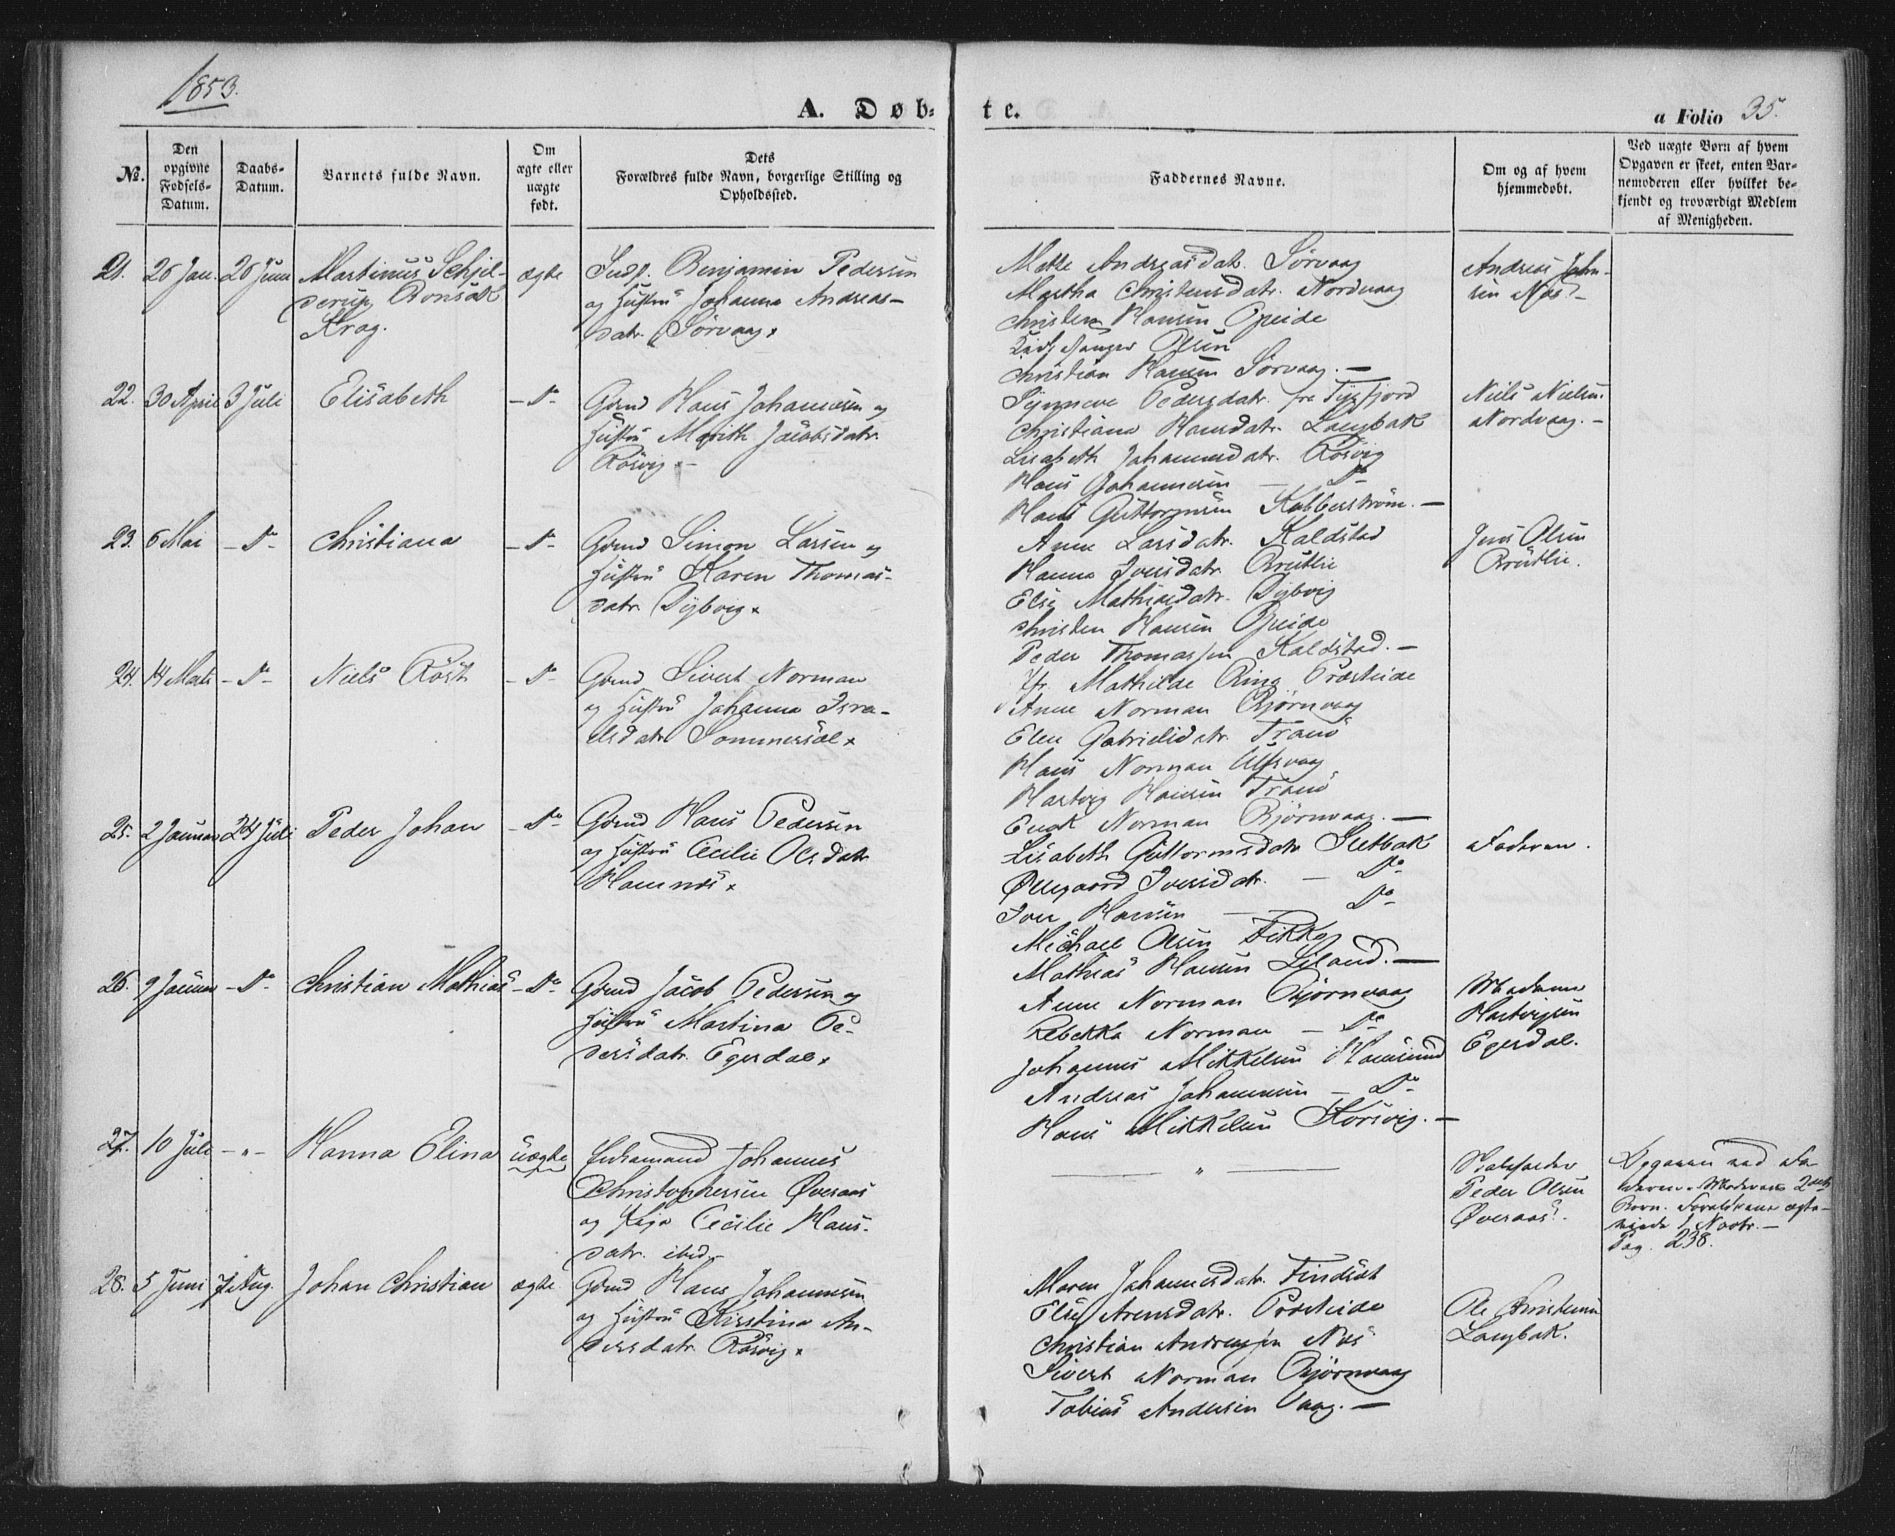 1853.
A. Døb-
te.
a Folio 35.
No.
Den
opgivne
Fødsels-
Datum.
Daabs-
Datum.
Barnets fulde Navn.
Om
ægte eller
uægte
født.
Dets
Forældres fulde Navn, borgerlige Stilling og
Opholdssted.
Faddernes Navne.
Om og af hvem
hjemmedøbt.
Ved uægte Børn af hvem
Opgaven er skeet, enten Bar-
nemoderen eller hvilket be-
kjendt og troværdigt Medlem
af Menigheden.
21. 26 Jan. 26 Juni Martinus Schjel-
derup Bonsak
Krag.
ægte
Indf. Benjamin Pedersen
og Hustru Johanna Andreas-
datr. Sørvaag
Mette Andreasdatr. Sørvaag
Martha Christensdatr. Nordvaag
Christen Hansen Opeide
Olsen
Christian Hansen Sørvaag. -
Andreas Johan-
sen Næs -
22. 30 April 3 Juli Elisabeth - Do -
Gbmd Hans Johannesen og
Hustru Marith Jacobsdatr.
Rösvig -
Synneve Pedersdatr. fra Tysfjord
Christiana Hansdatr. Langbak
Lisabeth Johannesdatr. Rösvig
Hans Johannesen - Do -
Hans Guttormsen Kobberström. -
Niels Nielsen
Nordvaag. -
23. 6 Mai - Do - Christiana - Do -
Gbmd Simon Larsen og
Hustru Karen Thomas-
datr. Dybvig
Anne Larsdatr. Kaldstad
Hanna Iversdatr. Brütlie
Else Mathiasdatr. Dybvig
Christen Hansen Opeide
Peder Thomassen Kaldstad. -
Jens Olsen
Brütlie.
24. 14 Marts - Do - Niels Röst - Do -
Gbmd Sivert Norman
og Hustru Johanna Isra-
elsdatr. Sommersæl
Jfr. Mathilde Ring Præsteide
Anne Norman Bjørnvaag
Elen Gabrielsdatr. Tranö
Hans Norman Ulfsvaag
Hartvig Hansen Tranö
Enok Norman Bjørnvaag. -
25. 2 Januar 24 Juli Peder Johan - Do -
Gbmd Hans Pedersen
og Hustru Cecilie Olsdatr.
Hamnæs
Lisabeth Guttormsdatr. Sletbak
Øllegaard Iversdatr. - Do -
Iver Hansen - Do -
Michael Olsen Fikke
Mathias Hansen Leland. -
Faderen.
26. 9 Januar - Do - Christian Mathias - Do -
Gbmd Jacob Pedersen og
Hustru Martina Pe-
dersdatr. Egerdal
Anne Norman Bjørnvaag
Rebekka Norman - Do
Johannes Mikkelsen Hamsund
Andreas Johannesen - Do -
Hans Mikkelsen Korsvig. -
Madame
Hartvigsen
Egerdal.
27. 10 Juli - " - Hanna Elina uægte
Enkemand Johannes
Christophersen Øveraas
og Pige Cecilie Hans-
datr. ibid.
"
Peder Olsen
Øveraas.
Opgaven ved Fa-
deren. Moderens 2det
Barn. Forældrene ægte-
viede 1 Novbr. -
Pag. 238.
28. 5 Juni 7 Aug. Johan Christian ægte
Gbmd Hans Johannesen
og Hustru Kirstina An-
dersdatr. Rösvig
Maren Johannesdatr. Findsæt
Else Arensdatr. Præsteide
Christian Andreassen Næs
Sivert Norman Bjørnvaag
Tobias Andersen Vaag. -
Ole Christensen
Langbak.